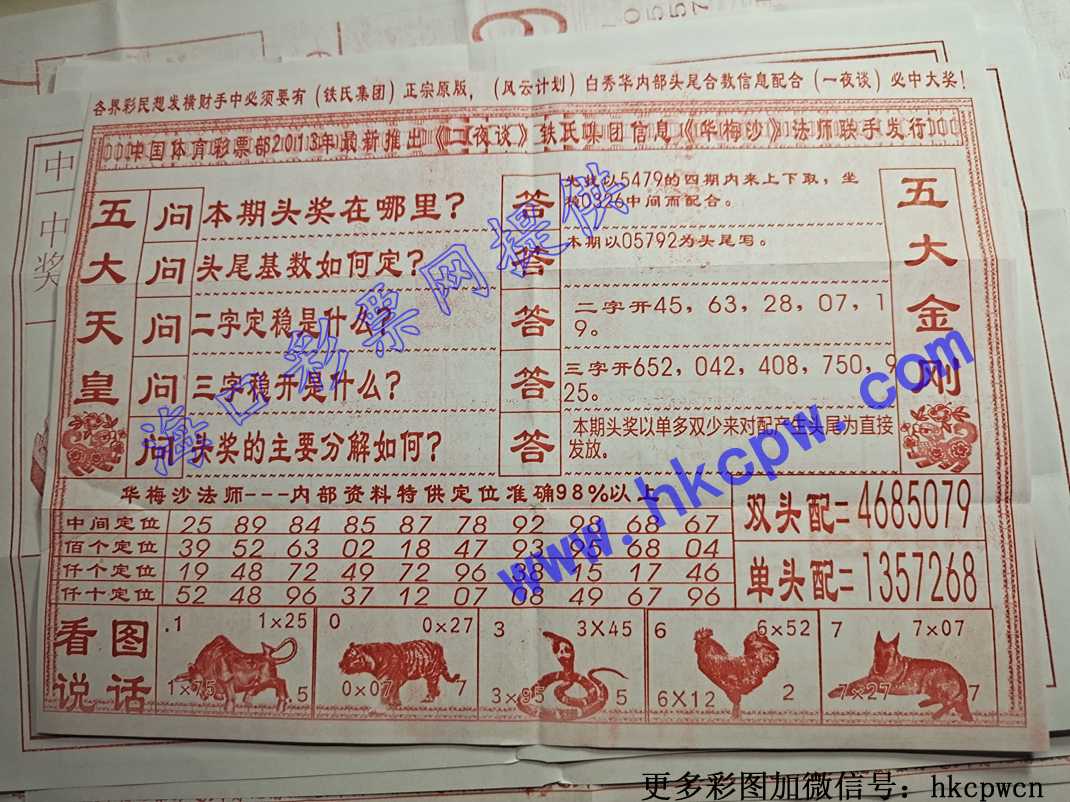 各界彩民想发横财手中必须要有（铁氏集团）正宗原版，（风云计划）白秀华内部头尾合数信息配合（一夜谈）必中大奖！
中国体育彩票部2013年最新推出《二夜谈》铁氏集团信息《华梅沙》法师联手发行
五大天皇
问 本期头奖在哪里？
答 以5479的四期内来上下取，坐
0326中间而配合。
问 头尾基数如何定？
答 本期以05792为头尾写。
问 二字定稳是什么？
答 二字开45，63，28，07，1
9。
问 三字稳开是什么？
答 三字开652，042，408，750，9
25。
问 头奖的主要分解如何？
答 本期头奖以单多双少来对配产生头尾为直接
发放。
五大金刚
华梅沙法师---内部资料特供定位准确98%以上
中间定位 25 89 84 85 87 78 92 98 68 67
佰个定位 39 52 63 02 18 47 93 95 68 04
仟个定位 19 48 72 49 72 96 38 15 17 46
仟十定位 52 48 96 37 12 07 68 49 67 96
双头配=4685079
单头配=1357268
看图
说话
.1 1×25
1×75 5
0 0×27
0×07 7
3 3X45
3×95 5
6 6×52
6X12 2
7 7×07
7×27 7
海口彩票网提供
www.hkcpw.com
中
一
中
奖
更多彩图加微信号：hkcpwcn